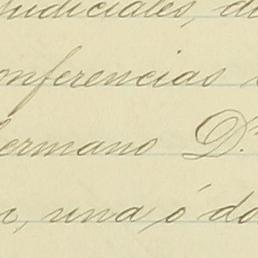 judiciales, d
onferencias
ermano D.
, una ó do